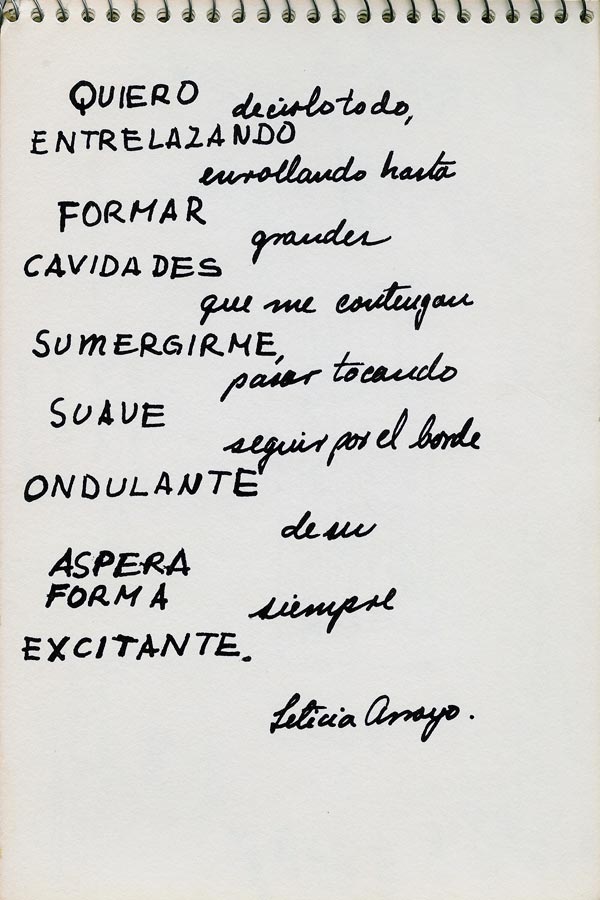 QUIERO decirlo todo,
ENTRELAZANDO
enrollando hasta
FORMAR
grandes
CAVIDADES
que me contengan
SUMERGIRME,
pasar tocando
SUAVE
seguir por el borde
ONDULANTE
de su
ASPERA
FORMA siempre
EXCITANTE.
Leticia Arroyo.